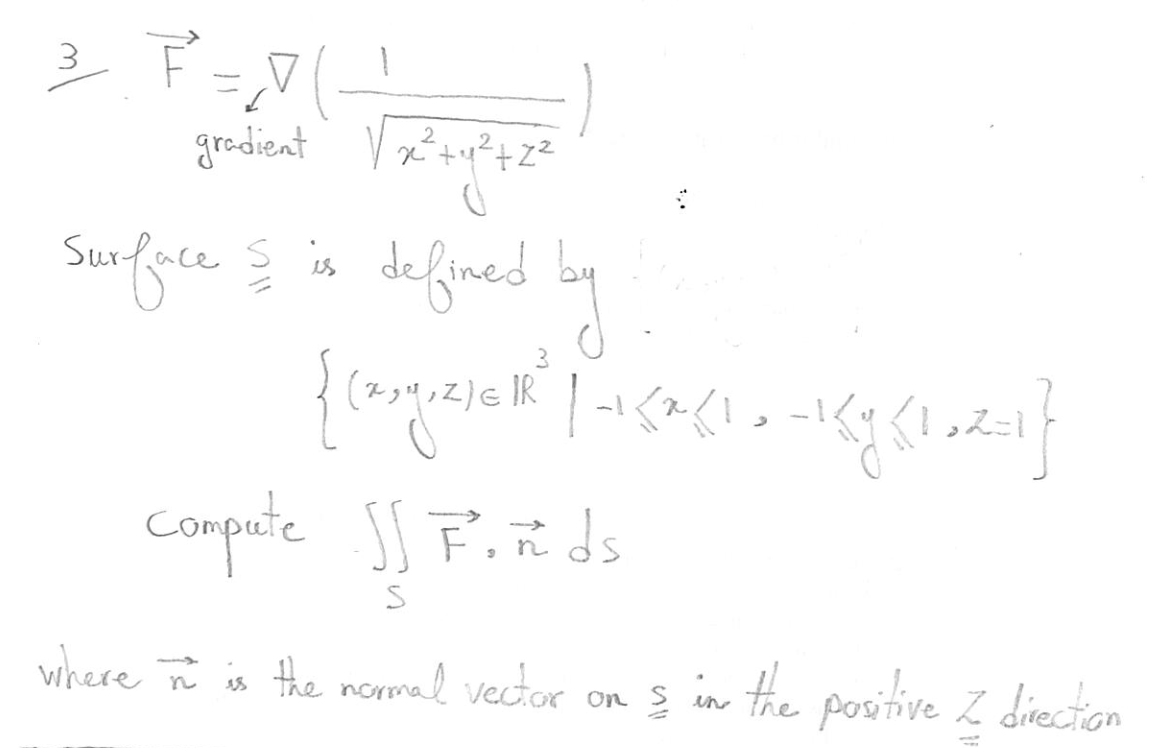 3 F⃗ = ∇(1/√(x²+y²+z²))
gradient
Surface S is defined by
{(x,y,z)∈ℝ³ | -1⩽x⩽1, -1⩽y⩽1, z=1}
Compute ∬_S F⃗.n⃗ ds
where n⃗ is the normal vector on S in the positive Z direction